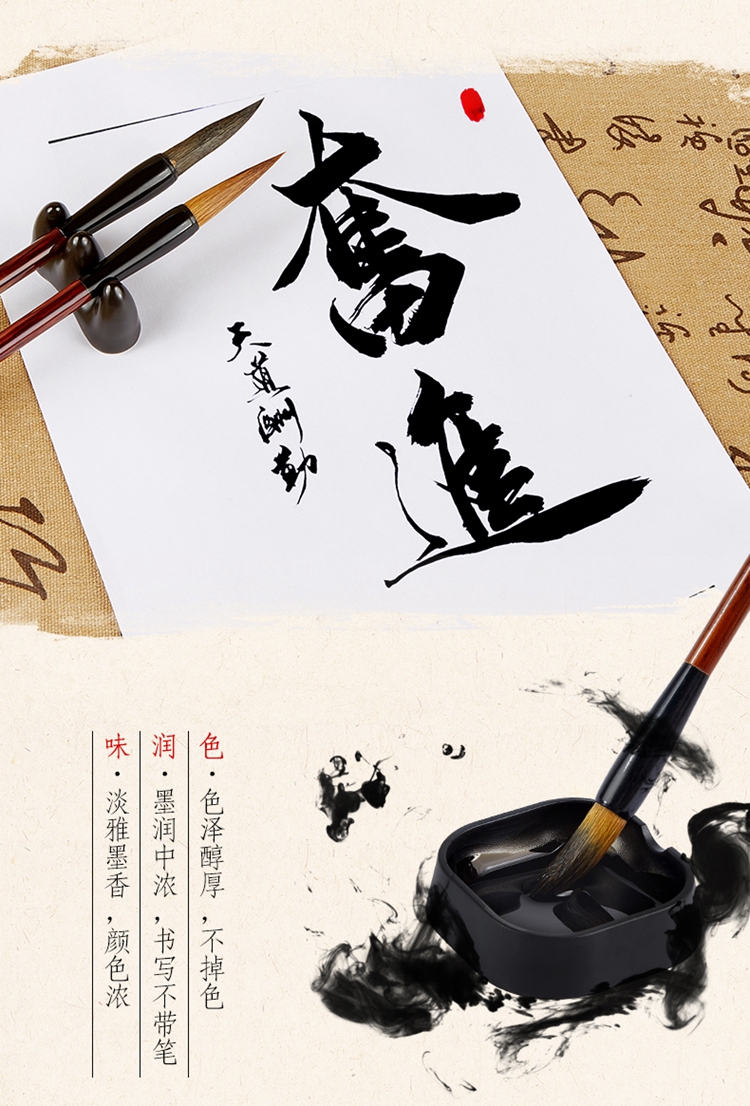 奮進
天道酬勤
色·色泽醇厚,不掉色
润·墨润中浓,书写不带笔
味·淡雅墨香,颜色浓